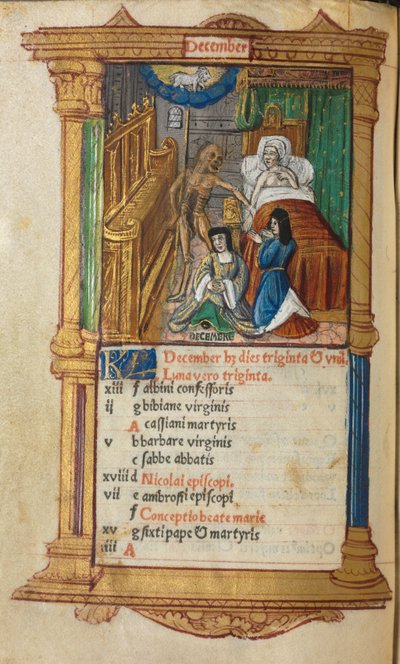 December
DECEMBRE
KL December hȝ dies triginta & vnū.
Luna vero triginta.
xiii f albini confessoris
ij g bibiane virginis
A cassiani martyris
v b barbare virginis
c sabbe abbatis
xviii d Nicolai episcopi.
vii e ambrosii episcopi
f Conceptio beate marie
xv g sixti pape & martyris
iiii A